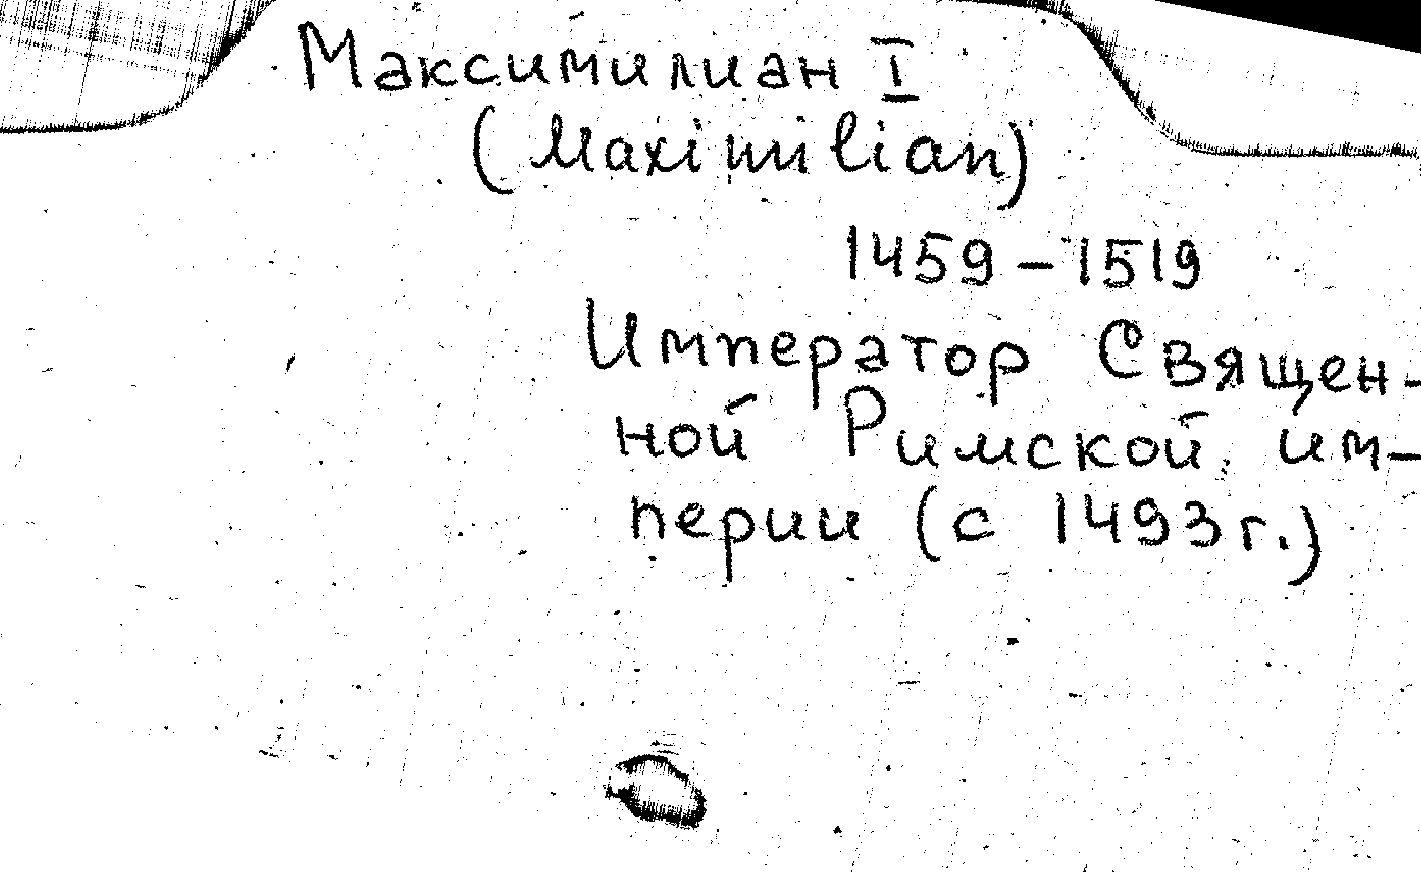 Максимилиан I
(Maximilian)
1459 – 1519
Император Священ-
ной Римской им-
перии (с 1493 г.)